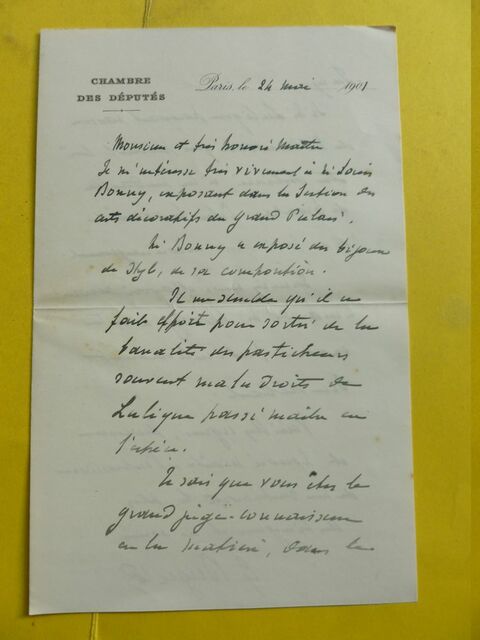 CHAMBRE
DES DÉPUTÉS
Paris, le 24 mai 1901
Monsieur et très honoré Maître
Je m'intéresse très vivement à M. Louis
Bonny, exposant dans la Section des
arts décoratifs du Grand Palais.
M. Bonny a exposé des bijoux
de style, de sa composition.
Il me semble qu'il a
fait effort pour sortir de la
banalité des pasticheurs
souvent maladroits de
Lalique passé maître en
l'espèce.
Je sais que vous êtes le
grand juge-connaisseur
en la matière, dans le